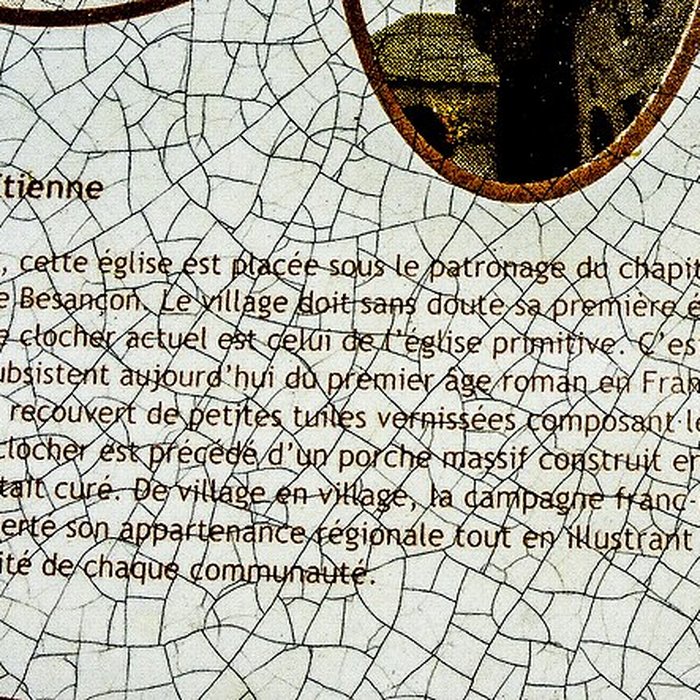 tienne
, cette église est placée sous le patronage du chapit
e Besançon. Le village doit sans doute sa première é
e clocher actuel est celui de l'église primitive. C'es
ubsistent aujourd'hui du premier âge roman en Fran
recouvert de petites tuiles vernissées composant le
clocher est précédé d'un porche massif construit en
tait curé. De village en village, la campagne franc-
erte son appartenance régionale tout en illustrant
ité de chaque communauté.